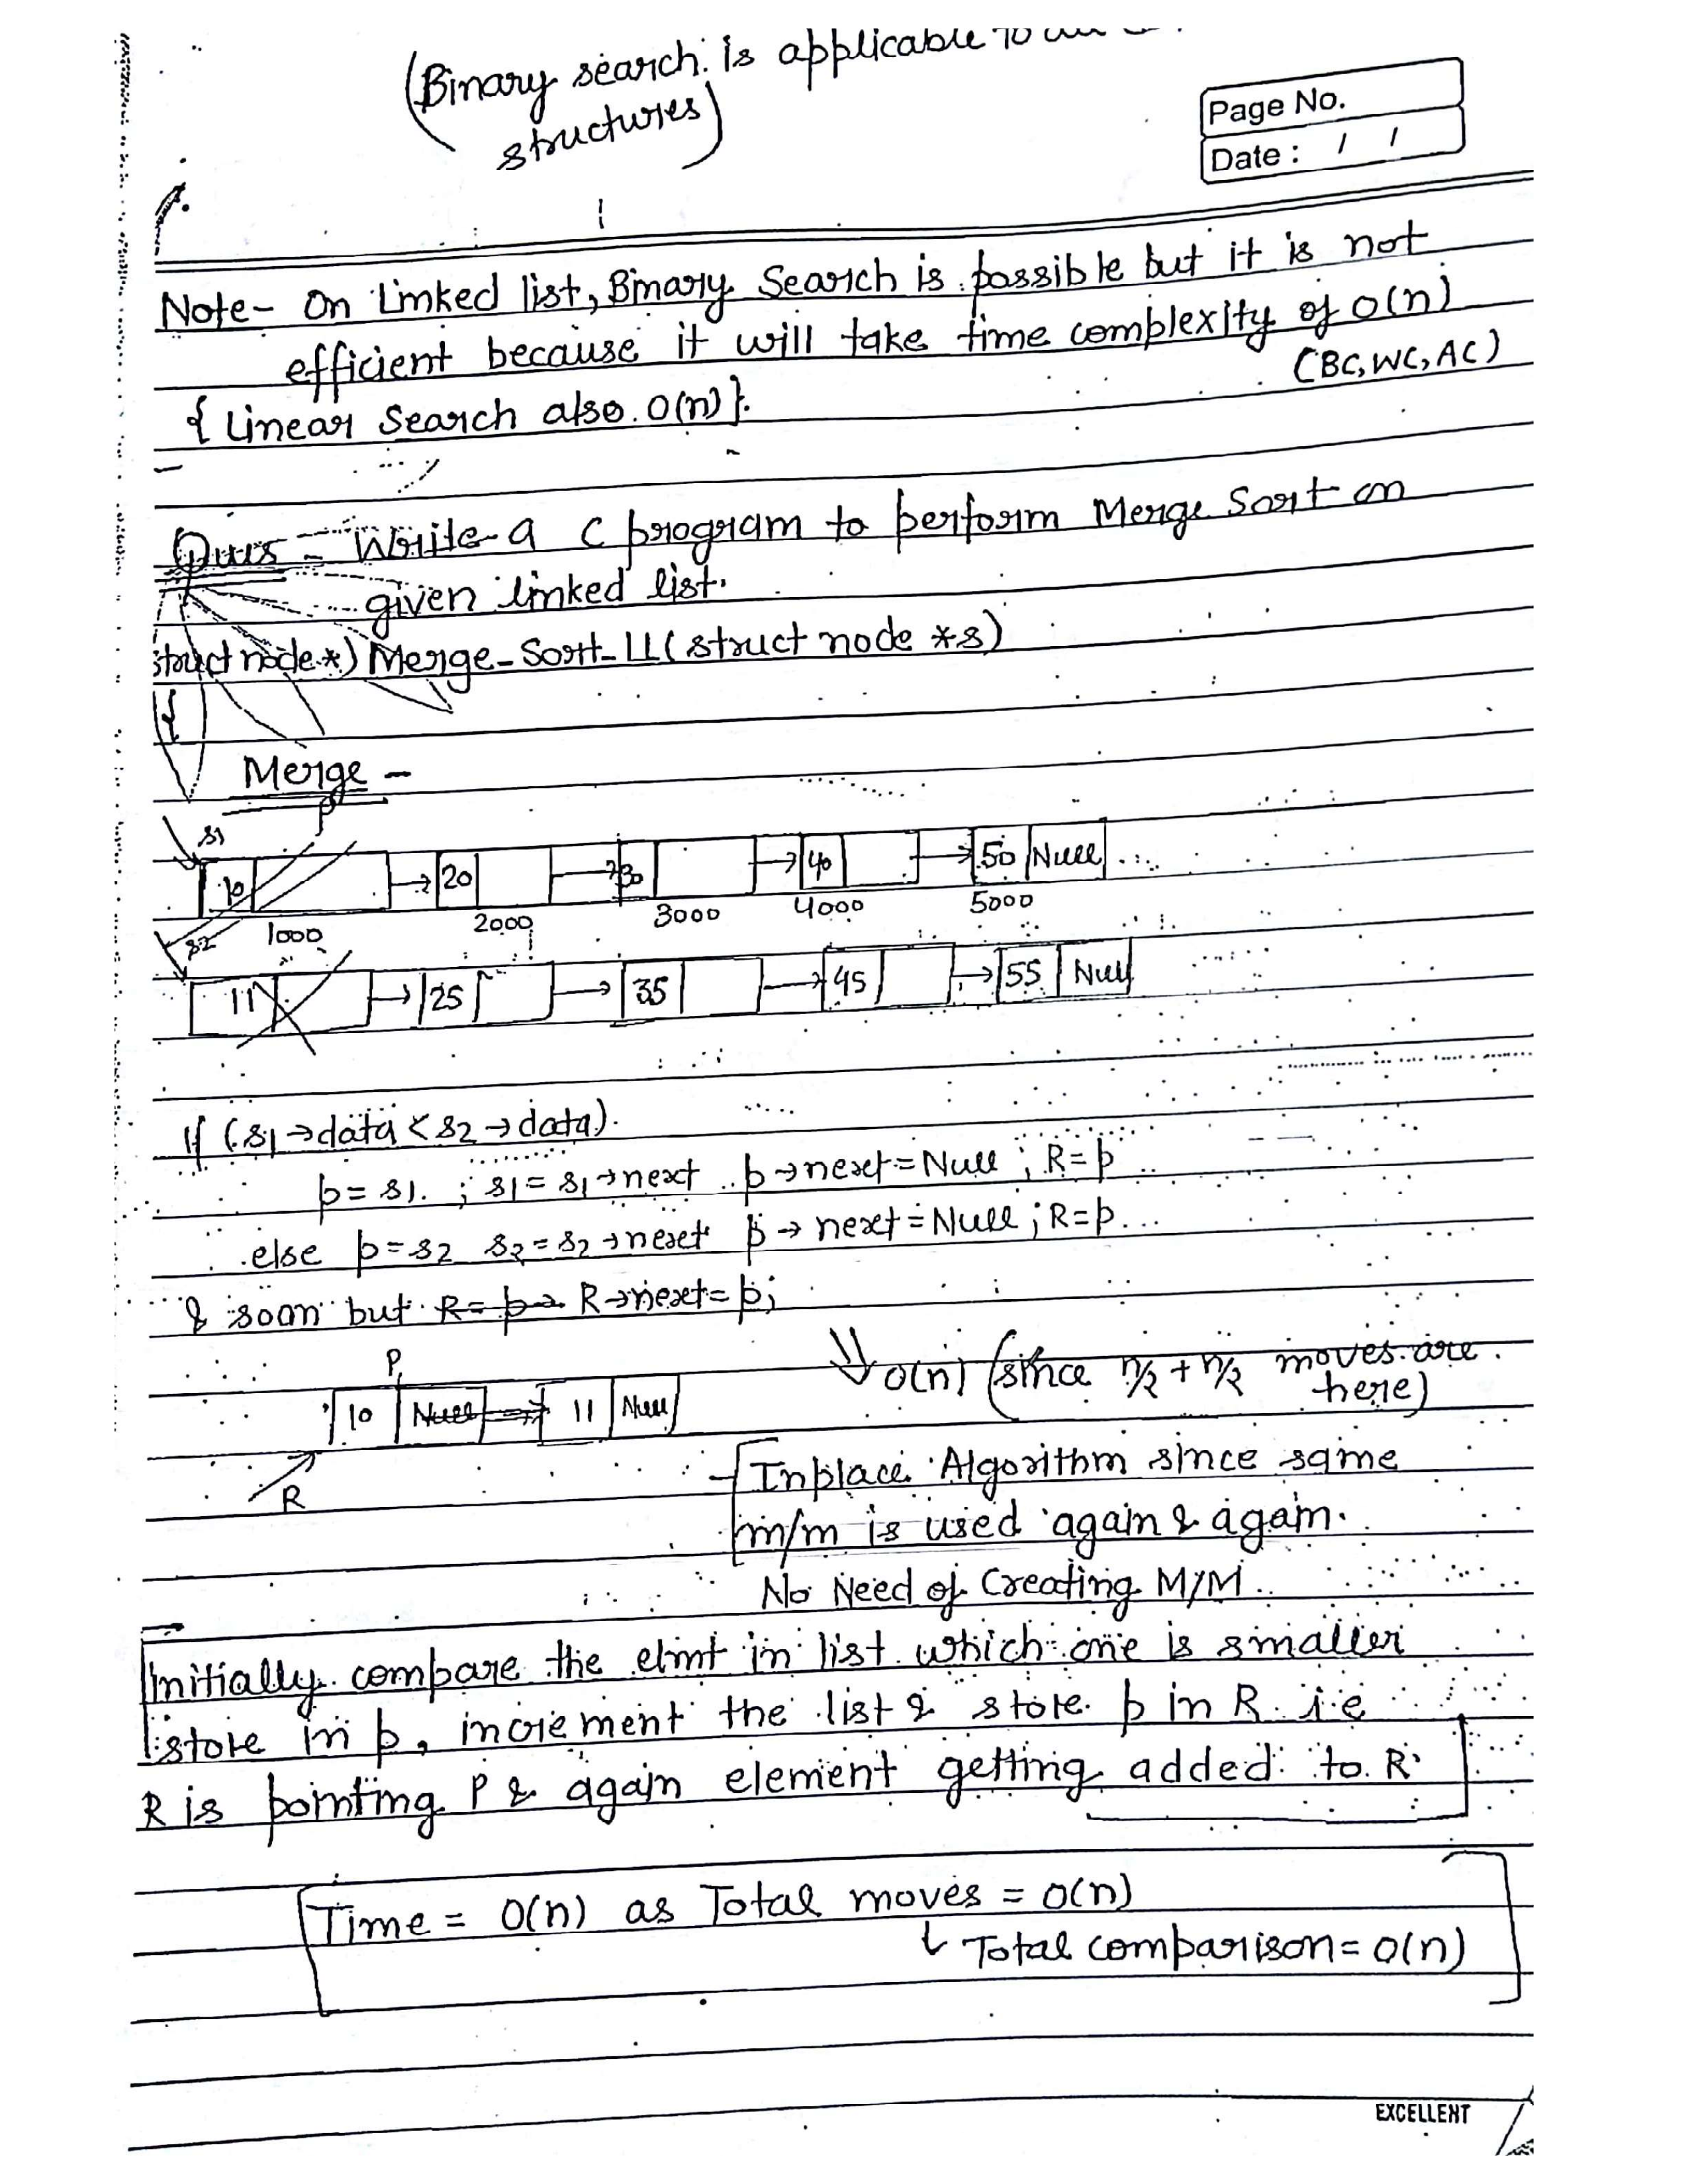 (Binary search is applicable to
structures)
Page No.
Date : / /
Note- On Linked list, Binary Search is possible but it is not
efficient because it will take time complexity of O(n)
(BC, WC, AC)
{ Linear Search also O(n) }.
Ques - Write a C program to perform Merge Sort on
given linked list.
struct node *) Merge-Sort-LL( struct node *s)
{
Merge -
p
s1
10 → 20 → 30 → 40 → 50 Null
1000 2000 3000 4000 5000
s2
11 → 25 → 35 → 45 → 55 Null
If (s1→data < s2→data)
p = s1 ; s1 = s1→next p→next = Null ; R = p
else p = s2 s2 = s2→next p→next = Null ; R = p
& soon but R = p R→next = p;
⇓ O(n) (since n/2 + n/2 moves are
here)
P
10 Null → 11 Null
R
Inplace Algorithm since same
m/m is used again & again.
No Need of Creating M/M.
Initially compare the elmt in list which one is smaller
store in p, increment the list & store p in R i.e
R is pointing P & again element getting added to R
Time = O(n) as Total moves = O(n)
↳ Total comparison = O(n)
EXCELLENT